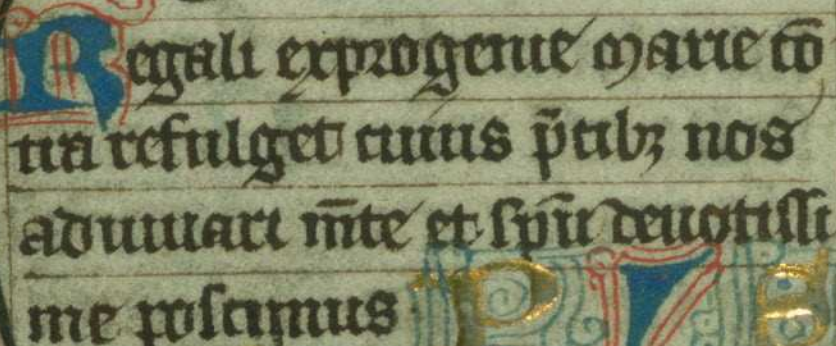 Regali exprogenie marie co᷒
ria refulget cuius p̄cibꝫ nos
adiuuari m̄te et sp̄u deuotissi
me poscimus